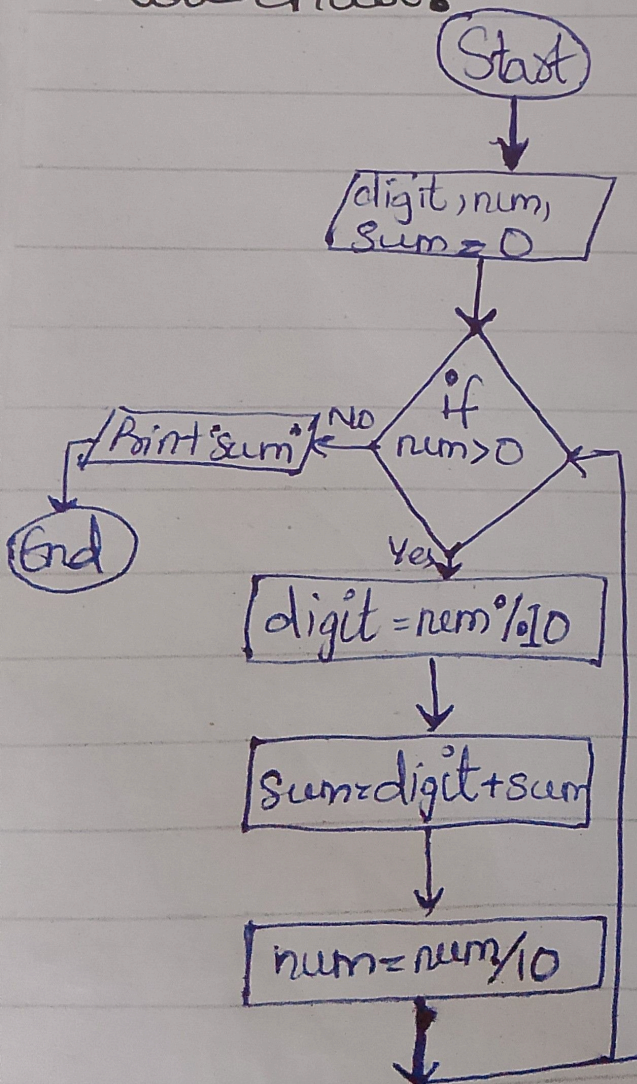 Start
digit, num,
sum = 0
if
num>0
No
Print "sum"
End
Yes
digit = num%10
sum=digit+sum
num=num/10